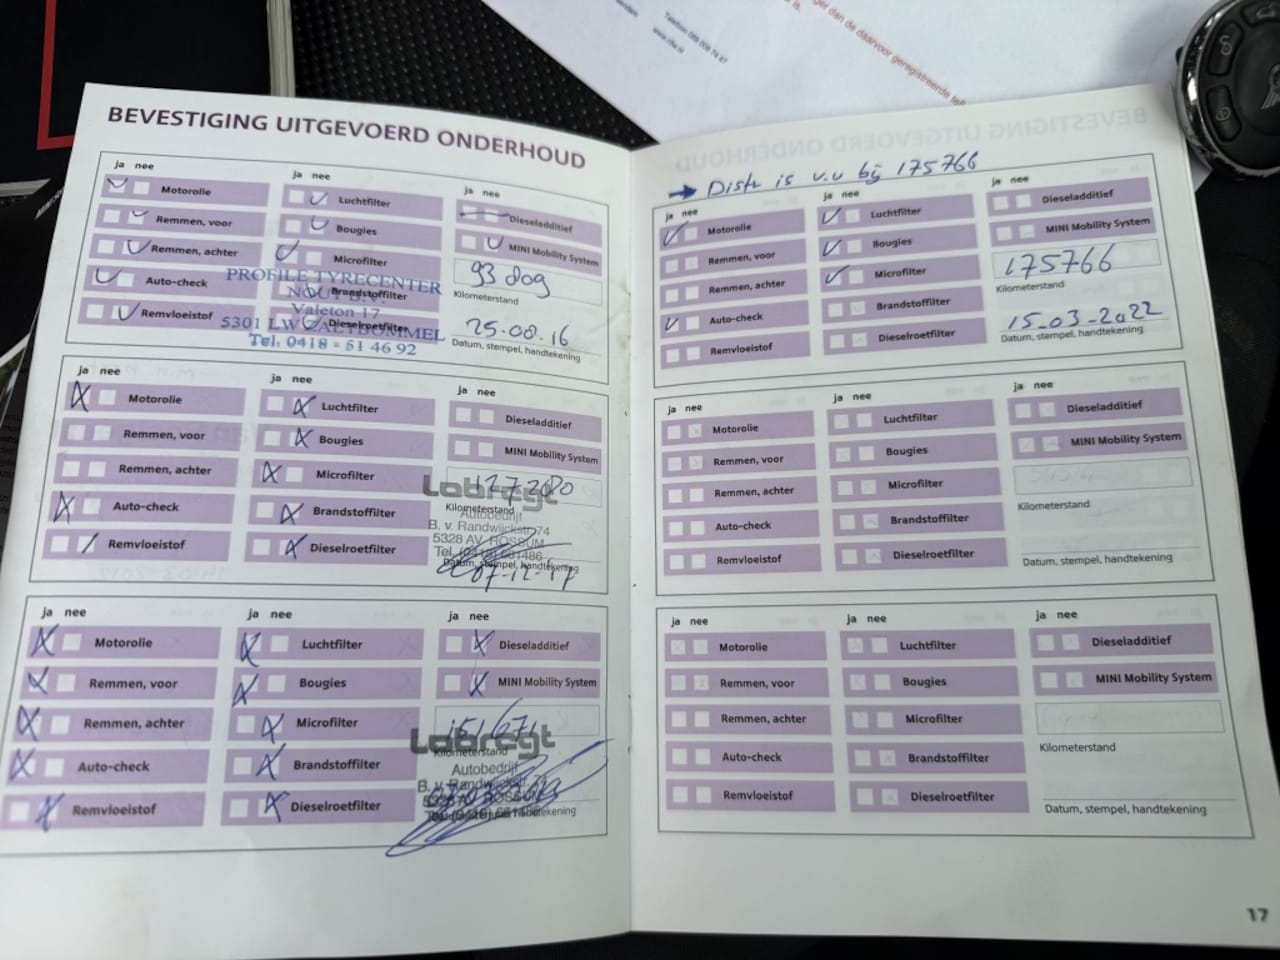 Telefoon 088 008 74 47
www.rdw.nl
ger dan de daarvoor geregistreerde
is.
BEVESTIGING UITGEVOERD ONDERHOUD
ja nee
Motorolie
Remmen, voor
Remmen, achter
Auto-check
Remvloeistof
ja nee
Luchtfilter
Bougies
Microfilter
Brandstoffilter
Dieselroetfilter
ja nee
Dieseladditief
MINI Mobility System
Kilometerstand
25.08.16
Datum, stempel, handtekening
PROFILE TYRECENTER
NOUT B.V.
Valeton 17
5301 LW ZALTBOMMEL
Tel. 0418 - 51 46 92
ja nee
Motorolie
Remmen, voor
Remmen, achter
Auto-check
Remvloeistof
ja nee
Luchtfilter
Bougies
Microfilter
Brandstoffilter
Dieselroetfilter
ja nee
Dieseladditief
MINI Mobility System
Kilometerstand
Datum, stempel, handtekening
Labregt
Autobedrijf
B. v. Randwijckstr. 74
5328 AV ROSSUM
ja nee
Motorolie
Remmen, voor
Remmen, achter
Auto-check
Remvloeistof
ja nee
Luchtfilter
Bougies
Microfilter
Brandstoffilter
Dieselroetfilter
ja nee
Dieseladditief
MINI Mobility System
151.671
Kilometerstand
Labregt
Autobedrijf
B. v. Randwijckstr. 74
→ Distr is v.v bij 175766
ja nee
Motorolie
Remmen, voor
Remmen, achter
Auto-check
Remvloeistof
ja nee
Luchtfilter
Bougies
Microfilter
Brandstoffilter
Dieselroetfilter
ja nee
Dieseladditief
MINI Mobility System
175766
Kilometerstand
15-03-2022
Datum, stempel, handtekening
ja nee
Motorolie
Remmen, voor
Remmen, achter
Auto-check
Remvloeistof
ja nee
Luchtfilter
Bougies
Microfilter
Brandstoffilter
Dieselroetfilter
ja nee
Dieseladditief
MINI Mobility System
Kilometerstand
Datum, stempel, handtekening
ja nee
Motorolie
Remmen, voor
Remmen, achter
Auto-check
Remvloeistof
ja nee
Luchtfilter
Bougies
Microfilter
Brandstoffilter
Dieselroetfilter
ja nee
Dieseladditief
MINI Mobility System
Kilometerstand
Datum, stempel, handtekening
17